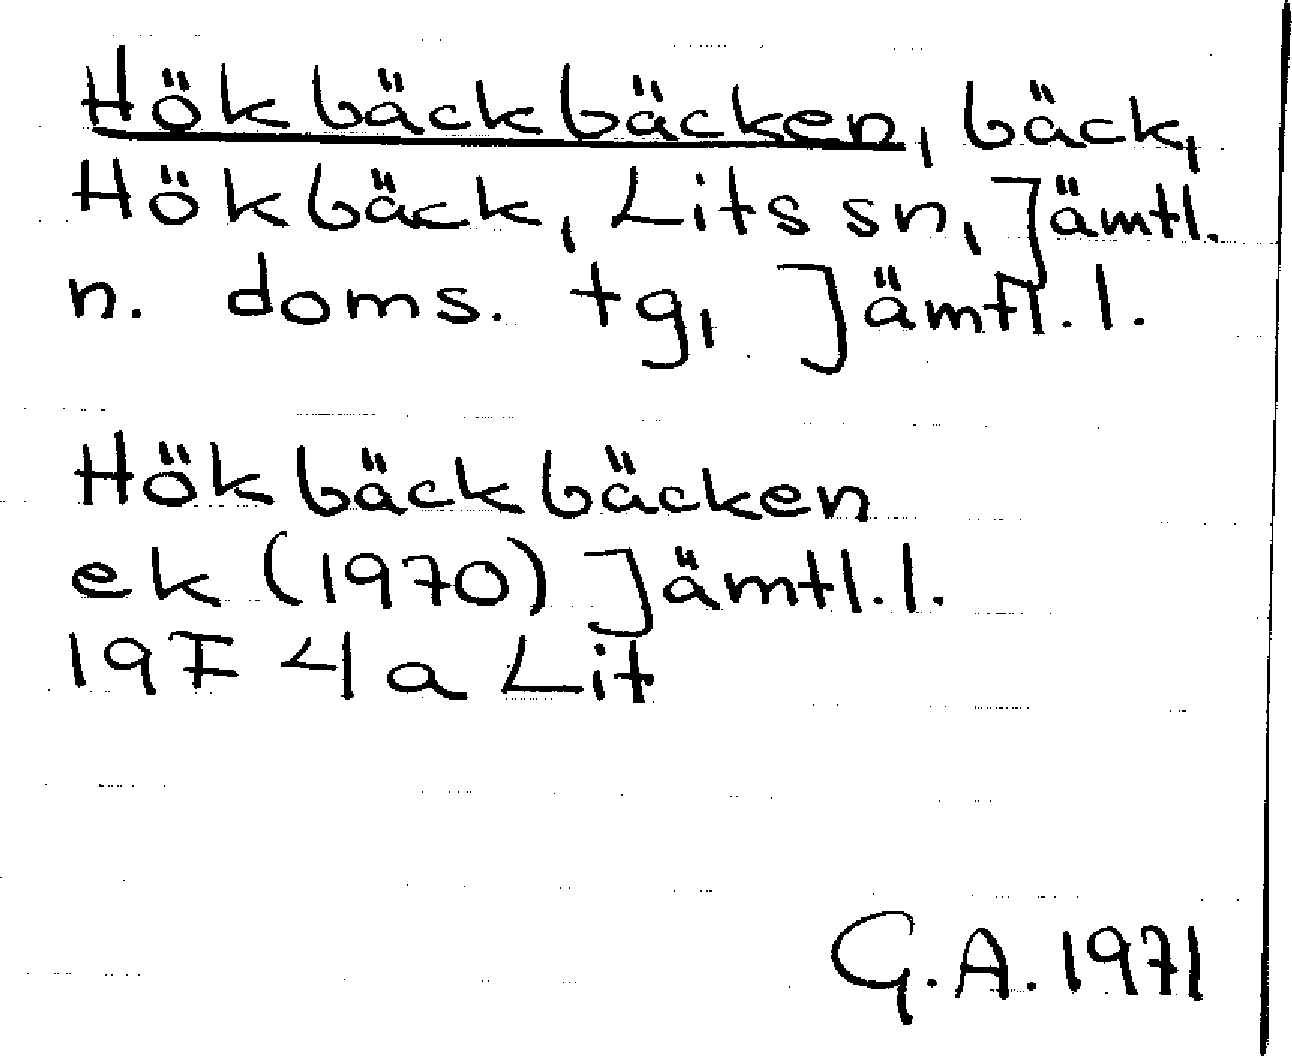 Hökbäckbäcken, bäck,
Hökbäck, Lits sn, Jämtl.
n. doms. tg, Jämtl. l.
Hökbäckbäcken
ek (1970) Jämtl. l.
19F 4a Lit
G.A. 1971